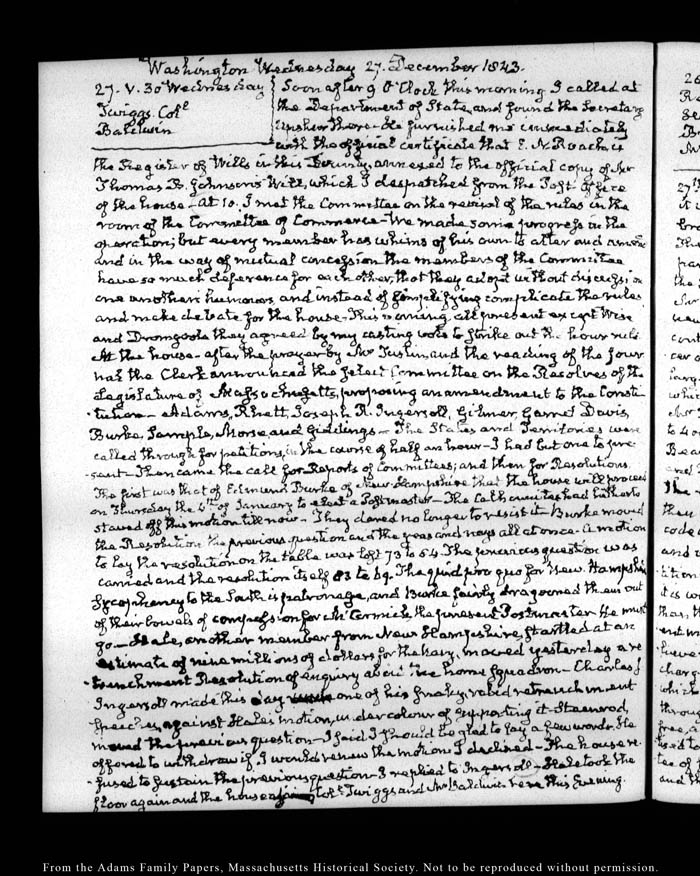 Washington Wednesday 27. December 1843.
27. V. 30 Wednesday
Twiggs Col.
Baldwin
Soon after 9 O'Clock this morning I called at
the Department of State, and found the Secretary
Upshur there. He furnished me immediately
with the official certificate that E. N. Roach is
the Register of Wills in this County, annexed to the official copy of Mr
Thomas B. Johnson's Will, which I despatched from the Post-Office
of the house. At 10. I met the Committee on the revisal of the rules in the
room of the Committee of Commerce. We made some progress in the
operation; but every member has whims of his own to alter and amend
and in the way of mutual concession the members of the Committee
have so much deference for each other, that they adopt without discussion
one another's humours, and instead of simplifying complicate the rules
and make debate for the house. This morning all present except Wise
and Dromgoole they agreed by my casting vote to strike out the hour rule
At the house. after the prayer by Mr Tustin, and the reading of the Jour
nal the Clerk announced the select Committee on the Resolves of the
Legislature of Massachusetts, proposing an amendment to the Consti-
tution — Adams, Rhett, Joseph R. Ingersoll, Gilmer, Garret Davis,
Burke, Sample, Morse and Giddings — The States and Territories were
called through for petitions, in the course of half an hour — I had but one to pre-
sent — Then came the call for Reports of Committees; and then for Resolutions.
The first was that of Edmund Burke of New Hampshire that the house will proceed
on Thursday the 4th of January to elect a Postmaster — The Call had hitherto
staved off this motion till now — They dared no longer to resist it Burke moved
the Resolution, the previous question and the yeas and nays all at once. A motion
to lay the resolution on the table was lost 73 to 54. The previous question was
carried and the resolution itself 83 to 69. The quid pro quo for New Hampshire
Sycophancy to the South is patronage, and Burke fairly dragooned them out
of their bowels of compassion for McCormick the present Postmaster. He must
go — Hale, another member from New Hampshire, startled at an
estimate of nine millions of dollars for the Navy, moved yesterday a re
trenchment Resolution of enquiry about the home Squadron — Charles J
Ingersoll made this day one of his rabid retrenchment
speeches, against Hale's motion, under colour of supporting it. Steenrod,
moved the previous question — I said I should be glad to say a few words. He
offered to withdraw if I would renew the motion. I declined — The house re-
fused to sustain the previous question — I replied to Ingersoll — Hale took the
floor again and the house Col. Twiggs and Mr Baldwin were here this Evening.
26
27
From the Adams Family Papers, Massachusetts Historical Society. Not to be reproduced without permission.